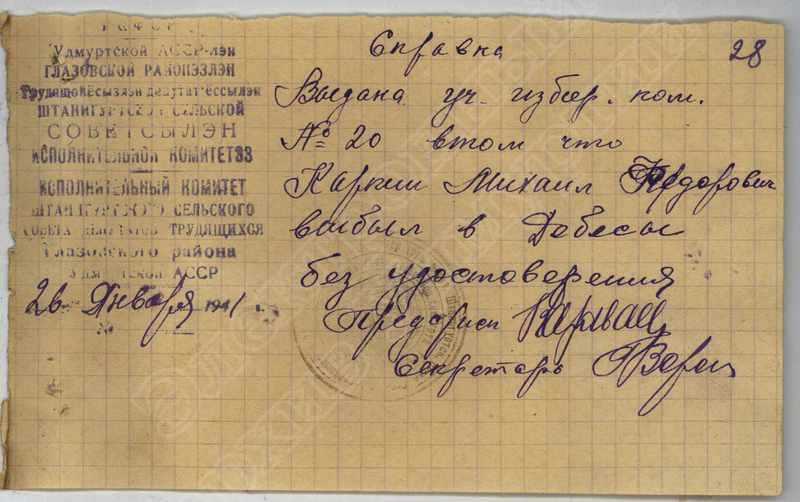 РСФСР
Удмуртской АССР-лэн
ГЛАЗОВСКОЙ РАЙОНЭЗЛЭН
Трудящойёсызлэн депутатъёссылэн
ШТАНИГУРТСКОЙ СЕЛЬСКОЙ
СОВЕТСЫЛЭН
ИСПОЛНИТЕЛЬНОЙ КОМИТЕТЭЗ
ИСПОЛНИТЕЛЬНЫЙ КОМИТЕТ
ШТАНИГУРТСКОГО СЕЛЬСКОГО
СОВЕТА ДЕПУТАТОВ ТРУДЯЩИХСЯ
Глазовского района
Удмуртской АССР
26 Января 1941 г.
28
Справка
Выдана уч. избир. ком.
№ 20 втом что
Михаил Федорович
выбыл в Дебесы
без удостоверения
Секретарь